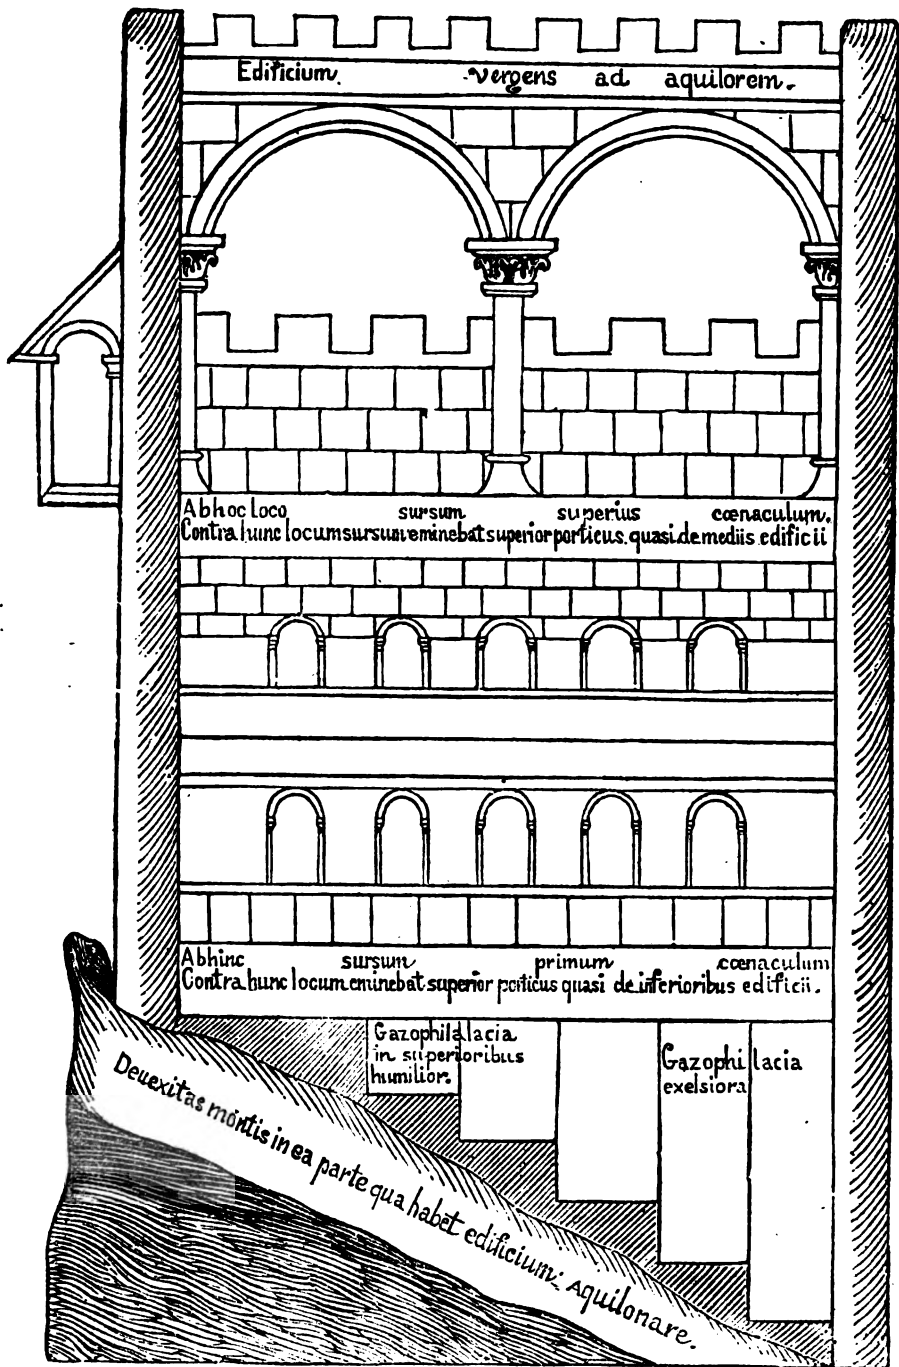 Edificium vergens ad aquilorem.
Ab hoc loco sursum superius cœnaculum.
Contra hunc locum sursum eminebat superior porticus. quasi de mediis edificii
Ab hinc sursum primum cœnaculum
Contra hunc locum eminebat superior porticus quasi de inferioribus edificii.
Gazophilalacia
in superioribus
humilior.
Gazophi lacia
exelsiora
Deuexitas montis in ea parte qua habet edificium: Aquilonare.